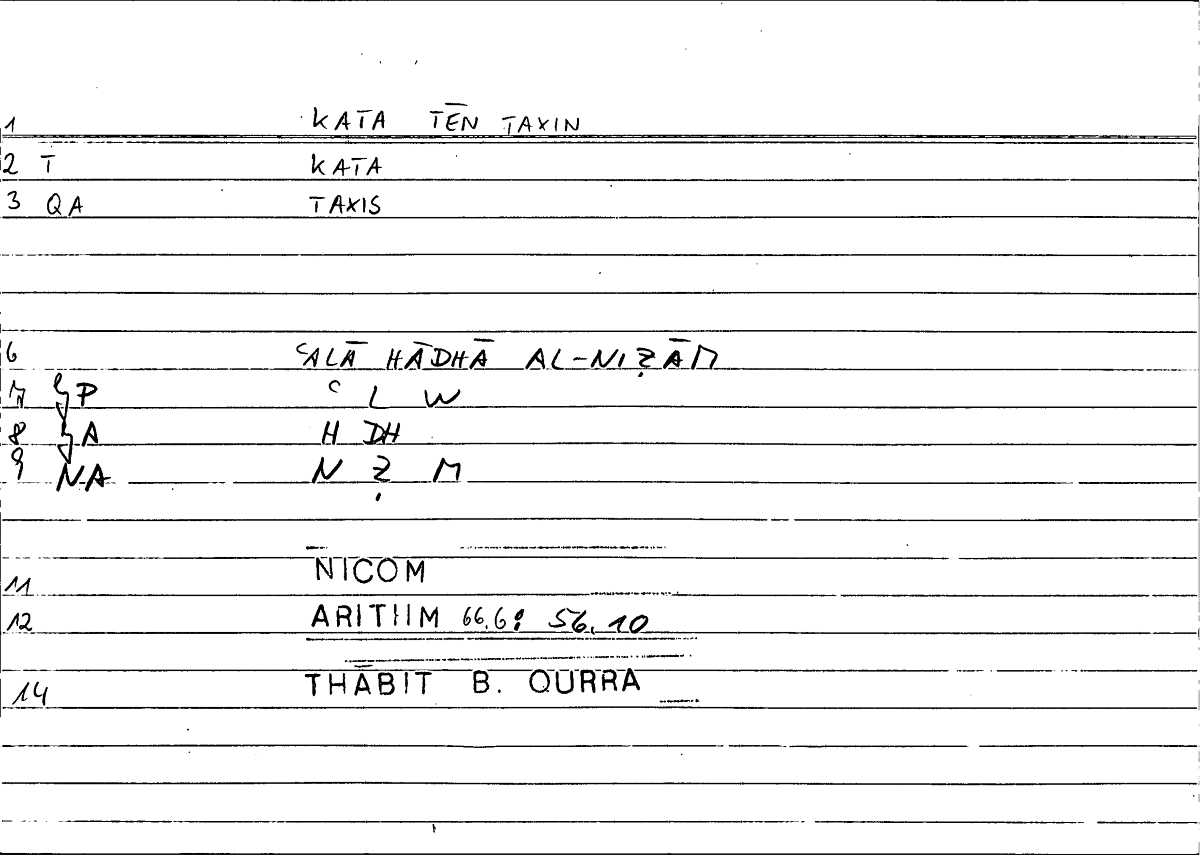 1 KATA TĒN TAXIN
2 T KATA
3 QA TAXIS
6 ʿALĀ HĀDHĀ AL-NIẒĀM
7 P ʿ L W
8 A H DH
9 NA N Ẓ M
11 NICOM
12 ARITHM 66.6: 56.10
14 THĀBIT B. QURRA